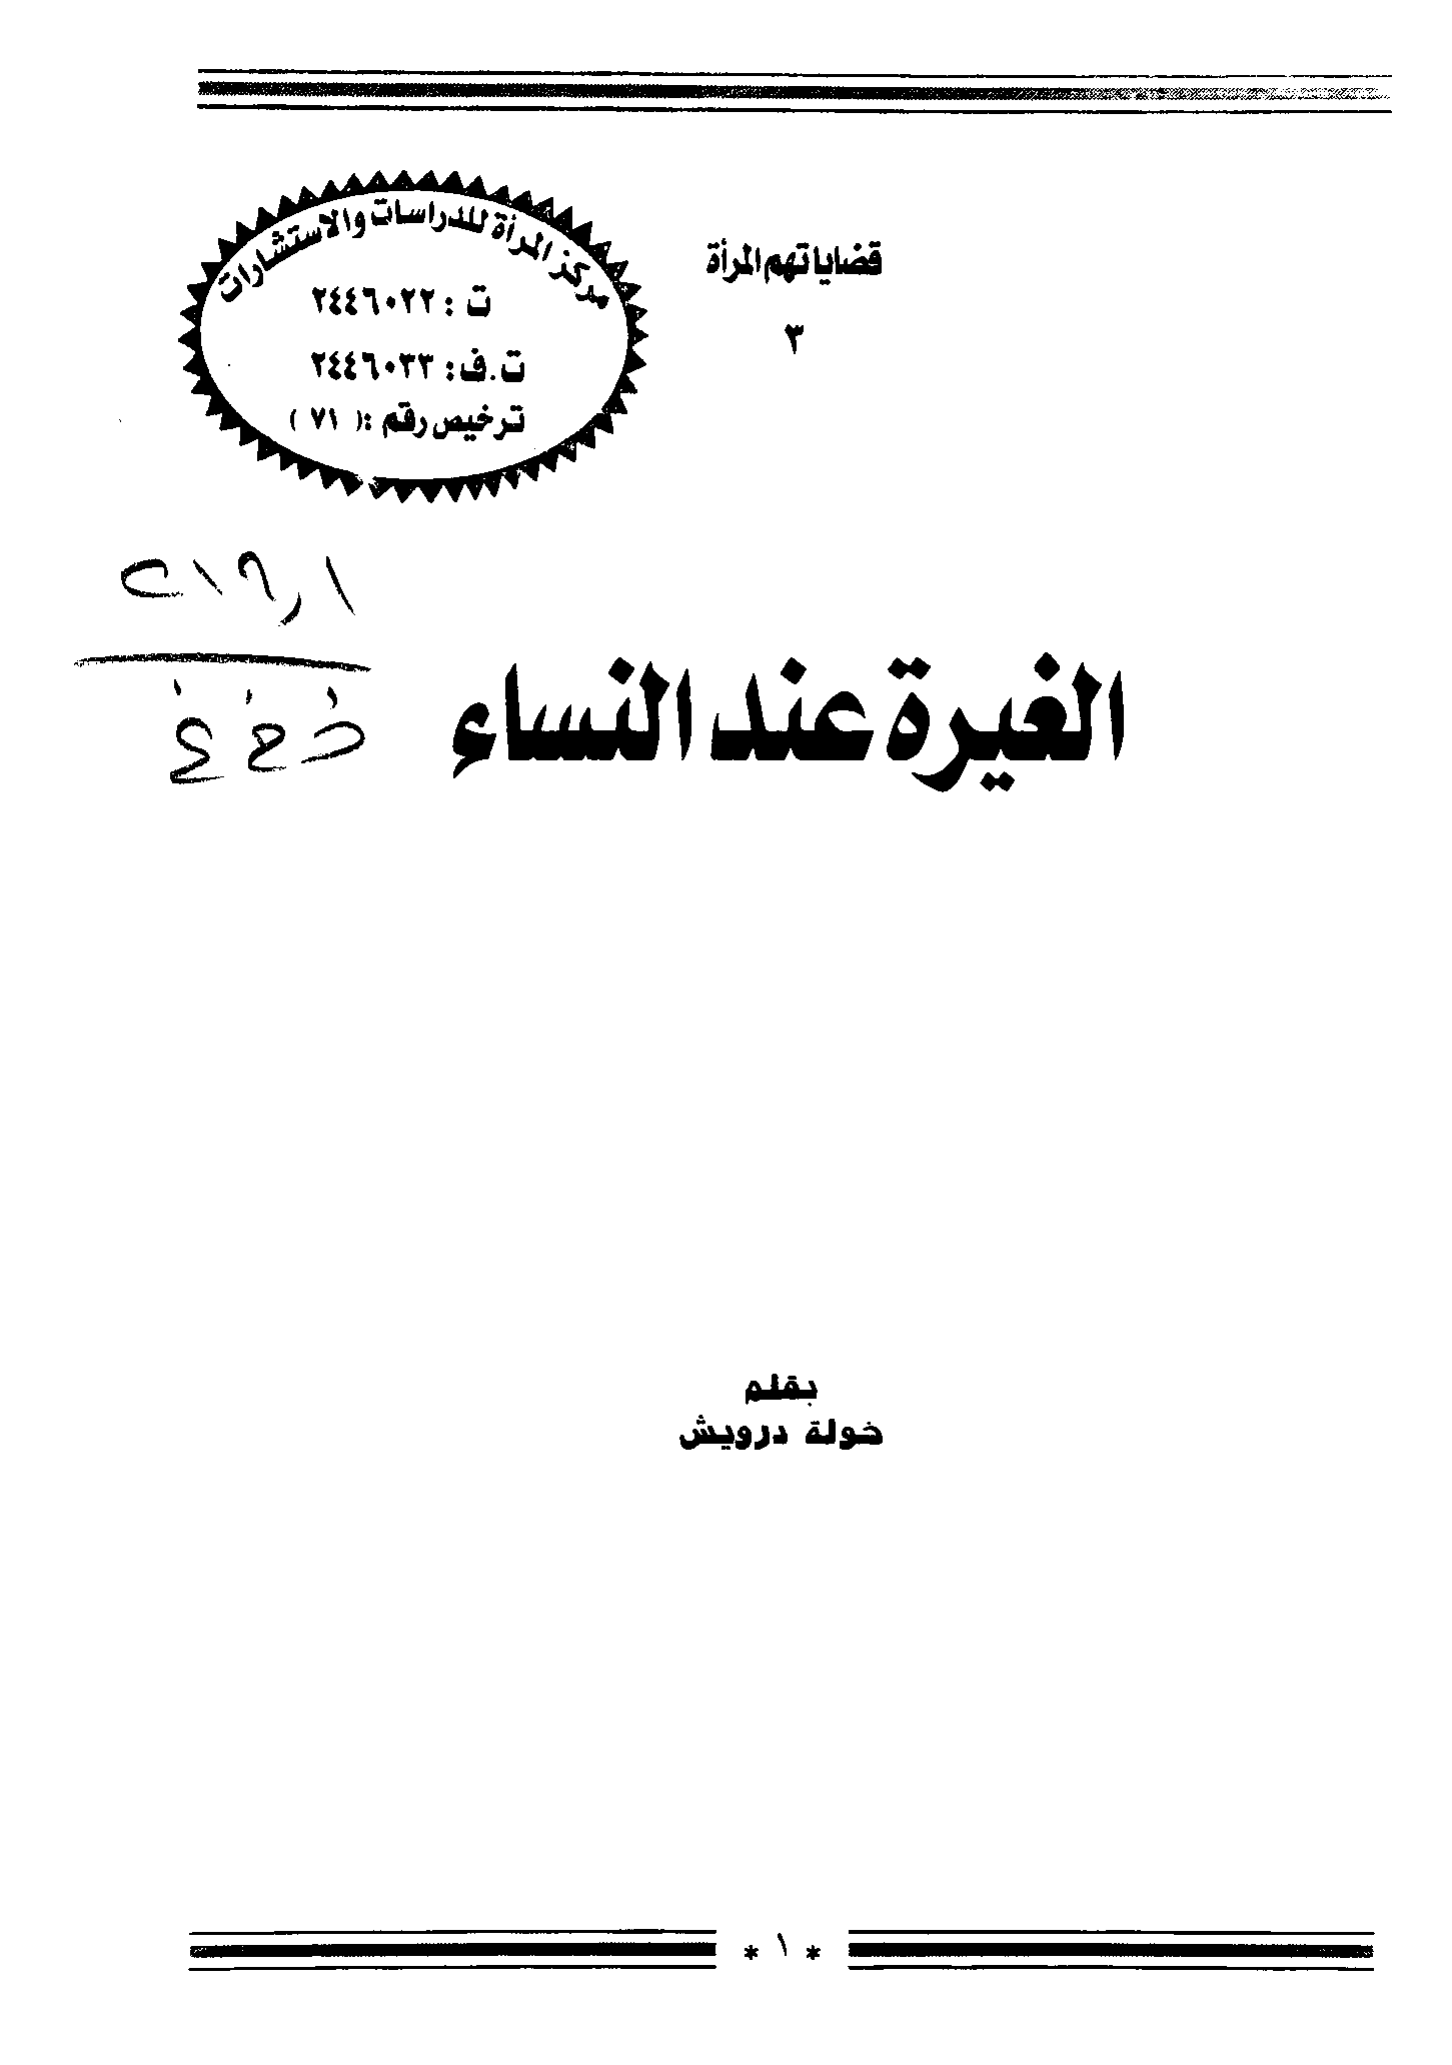 قضايا تهم المرأة
٣
مركز المرأة للدراسات والاستشارات
ت : ٢٤٤٦٠٢٢
ت.ف: ٢٤٤٦٠٣٣
ترخيص رقم :( ٧١ )
٢١٩,١
الغيرة عند النساء
بقلم
خولة درويش
* ١ *